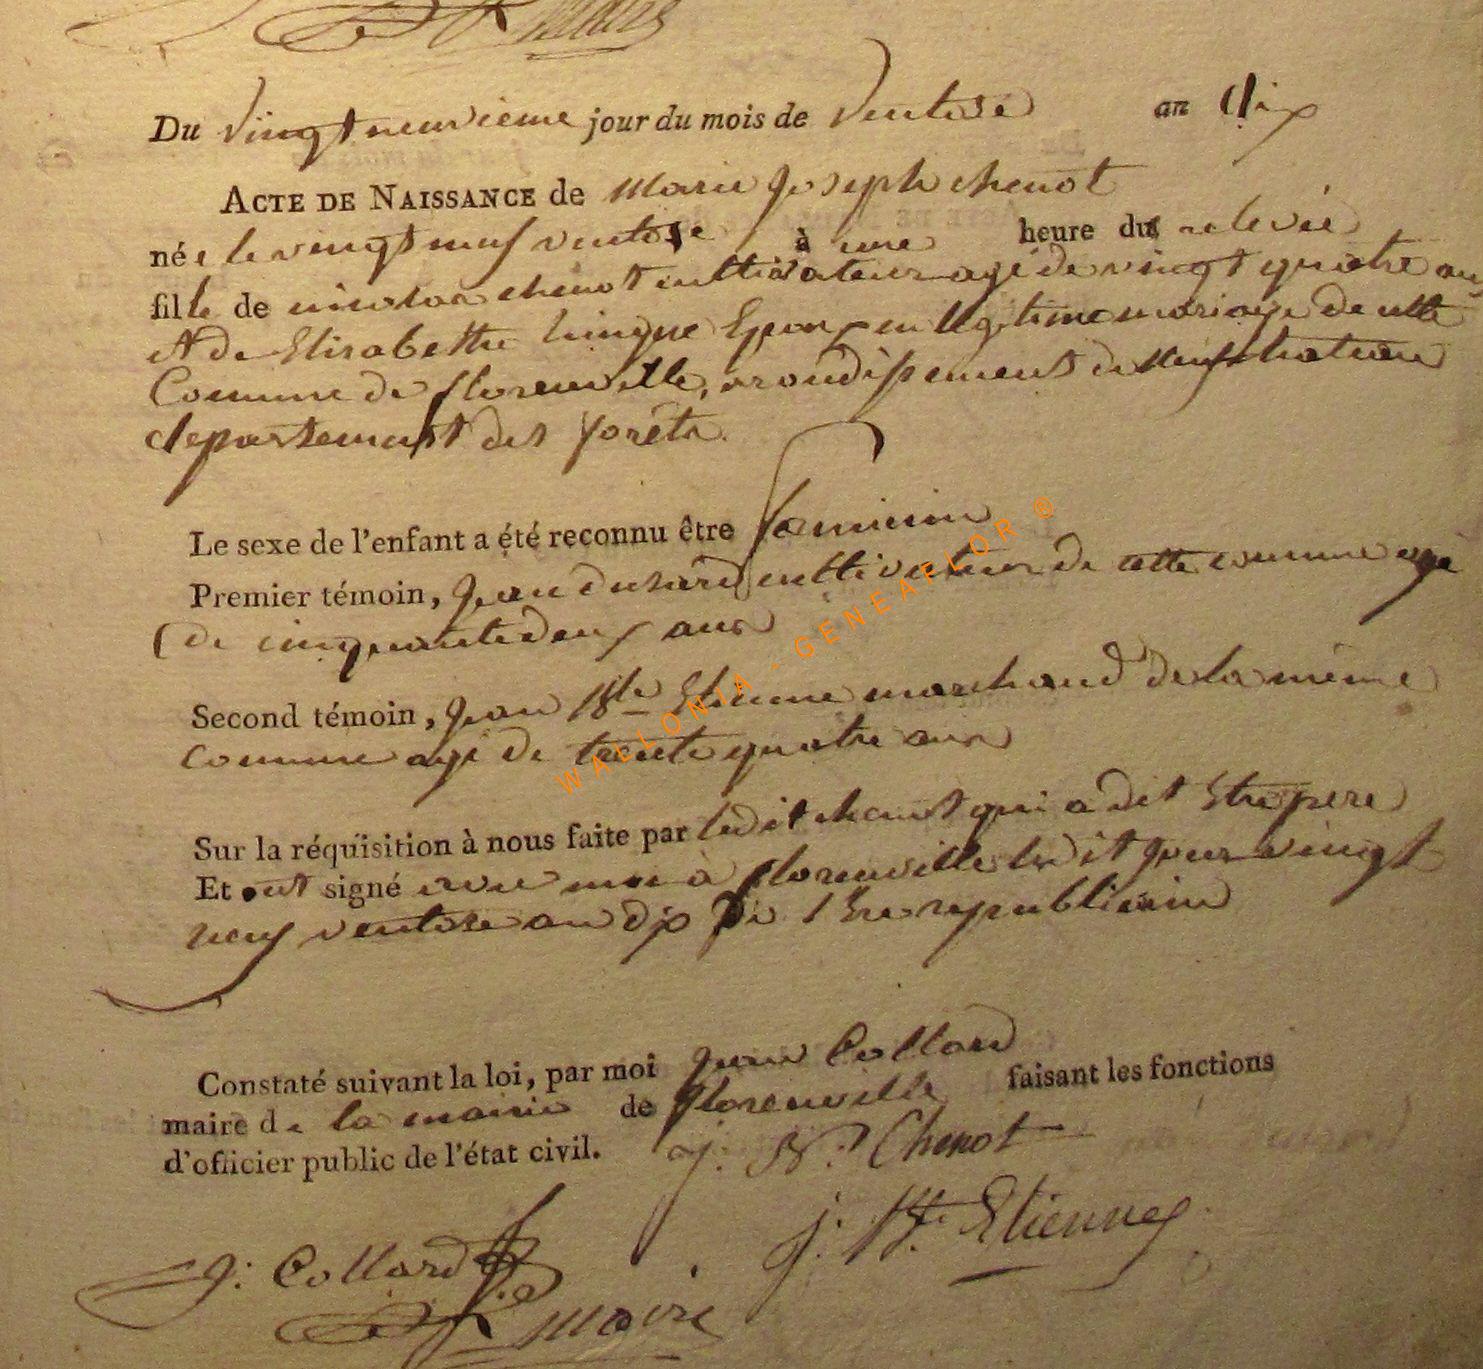 Du vingt neuvieme jour du mois de ventose an dix
ACTE DE NAISSANCE de marie joseph chenot
née le vingt neuf ventose à une heure de relevée
fille de nicolas chenot cultivateur agé de vingt quatre ans
et de Elisabethe Epoux en legitime mariage de cette
Commune de florenville, arondissement de neufchateau
departement des forêts.
Le sexe de l'enfant a été reconnu être feminin
Premier témoin, jean cultivateur de cette commune agé
de cinquante deux ans
Second témoin, jean Bte Etienne marchand de la même
commune agé de trente quatre ans
Sur la réquisition à nous faite par ledit chenot qui a dit Etre pere
Et ont signé avec moi à florenville ledit jour vingt
neuf ventose an dix de l'Ere republicain
Constaté suivant la loi, par moi jean Collard
maire de la mairie de florenville faisant les fonctions
d'officier public de l'état civil.
j. N. Chenot
j. Bt. Etienne
j: Collard
maire
WALLONIA - GENEAFLOR ®